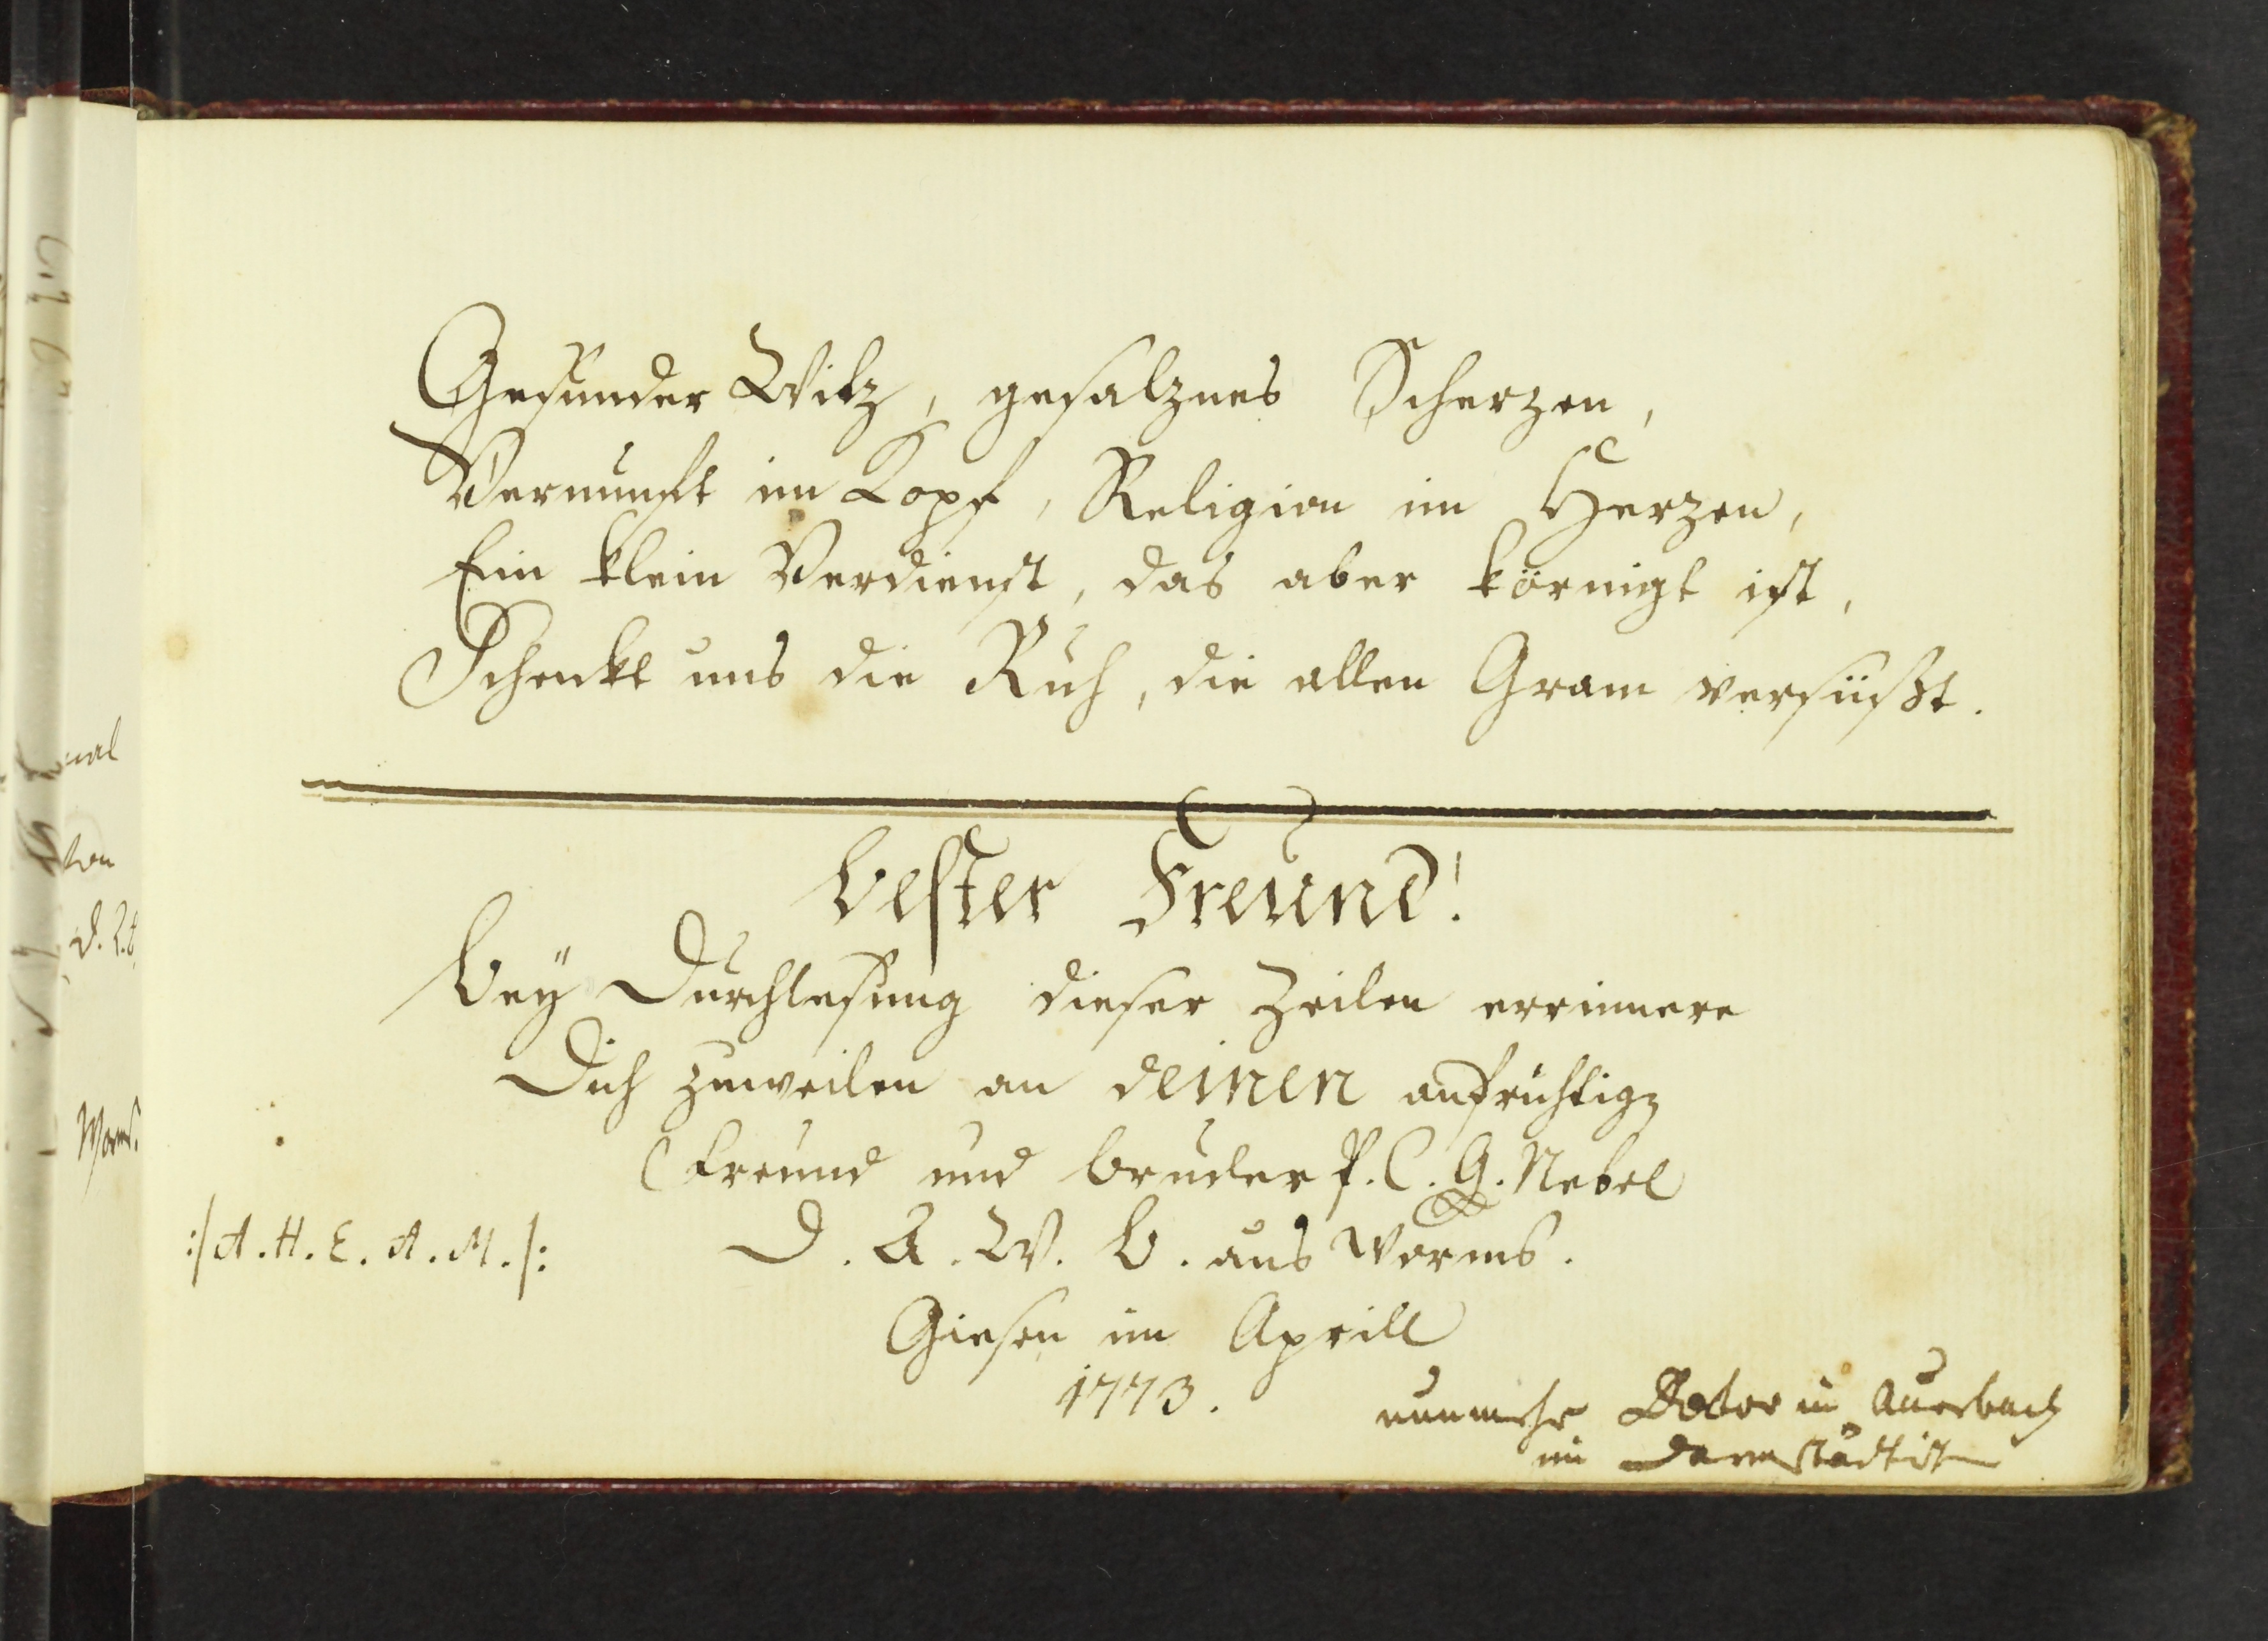 Gesunder Witz, gesalznes Scherzen,
Vernunft im Kopf, Religion im Herzen,
Ein klein Verdienst, das aber körnigt ist,
Schenkt uns die Ruh, die allen Gram versüßt.
bester Freund!
Bey Durchlesung dieser Zeilen errinnere
Dich zuweilen an deinen aufrichtig
Freund und Bruder P. C. G. Nebel
:/ A. H. E. A. M. /: D. A. W. B. aus Worms.
Giesen im Aprill
1773.
nunmehr Doctor in Auerbach
im Darmstädtisch